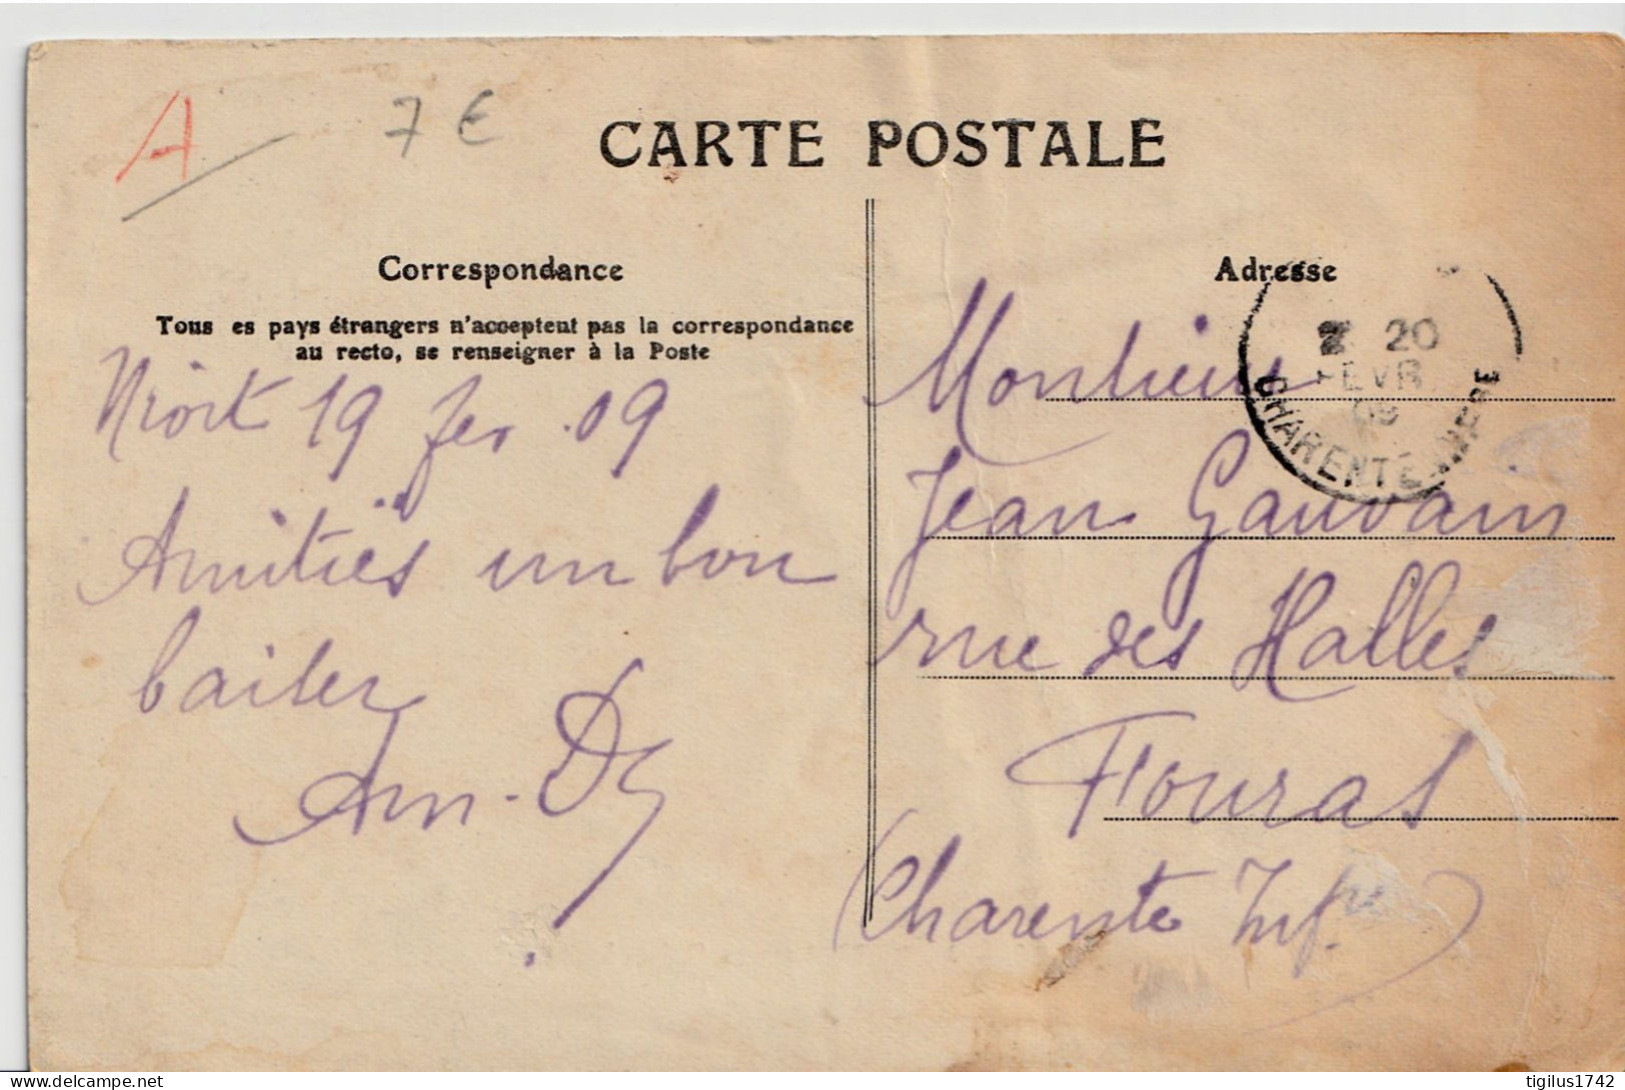 A
7 €
CARTE POSTALE
Correspondance
Tous es pays étrangers n'acceptent pas la correspondance
au recto, se renseigner à la Poste
Niort 19 fev 09
Amitiés un bon
baiser
Adresse
20
FEVR
09
CHARENTE INFRE
Monsieur
Jean Gauvain
rue des Halles
Fouras
(Charente Infre)
Delcampe.net
tigilus1742